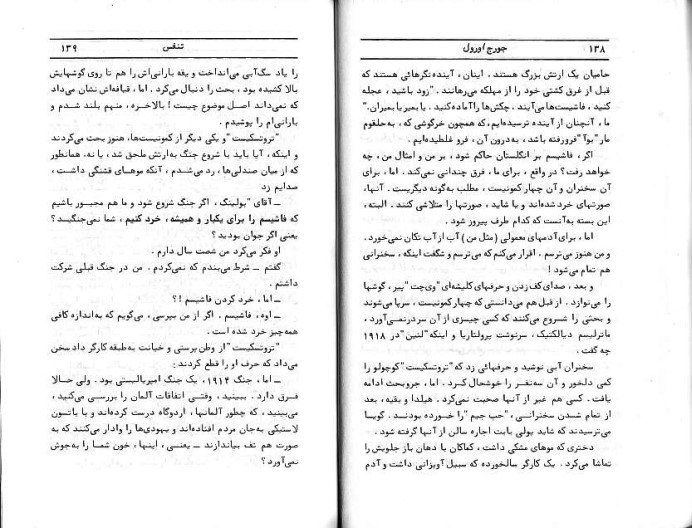 ۱۳۸ جورج اورول
حامیان یک ارتش بزرگ هستند ، اینان ، آینده‌نگرهائی هستند که
قبل از غرق کشتی خود را از مهلکه می‌رهانند . "زود باشید ، عجله
کنید ، فاشیست‌ها می‌آیند . چکش‌ها را آماده کنید . یا بمیر یا بمیران."
ما ، آنچنان از آینده ترسیده‌ایم ، که همچون خرگوشی که ، به‌حلقوم
مار "بوآ" فرورفته باشد ، به‌درون آن ، فرو غلطیده‌ایم .
اگر ، فاشیسم بر انگلستان حاکم شود ، بر من و امثال من ، چه
خواهد رفت؟ در واقع ، برای ما ، فرق چندانی نمی‌کند . اما ، برای
آن سخنران و آن چهار کمونیست ، مطلب به‌گونه دیگریست . آنها ،
صورتهای خرد شده‌اند و یا شاید ، صورتها را متلاشی کنند . البته ،
این بسته به‌آنست که کدام طرف پیروز شود .
اما ، برای آدمهای معمولی (مثل من) آب از آب تکان نمی‌خورد .
و من هنوز می‌ترسم . اقرار می‌کنم که می‌ترسم و شگفت اینکه ، سخنرانی
هم تمام می‌شود !
و بعد ، صدای کف زدن و حرفهای کلیشه‌ای "وی‌چت" پیر ، گوشها
را می‌نوازد . از قبل هم می‌دانستی که چهار کمونیست ، سرپا می‌شوند
و بحثی را شروع می‌کنند که کسی چیزی از آن سردرنمی‌آورد ،
ماتریلسم دیالکتیک ، سرنوشت پرولتاریا و اینکه "لنین" در ۱۹۱۸
چه گفت .
سخنران آبی نوشید و حرفهائی زد که "تروتسکیست" کوچولو را
کمی دلخور و آن سه‌نفر را خوشحال کرد . اما ، جروبحث ادامه
یافت . کسی هم غیر از آنها صحبت نمی‌کرد . هیلدا و بقیه ، بعد
از تمام شدن سخنرانی ، "حب جیم" را خورده بودند . گویا
می‌ترسیدند که شاید پولی بابت اجاره سالن از آنها گرفته شود .
دختری که موهای مشکی داشت ، کماکان با دهان باز جلویش را
تماشا می‌کرد . یک کارگر سالخورده که سبیل آویزانی داشت و آدم
تنفس ۱۳۹
را یاد سگ‌آبی می‌انداخت و یقه بارانی‌اش را هم تا روی گوشهایش
بالا کشیده بود ، بحث را دنبال می‌کرد . اما ، قیافه‌اش نشان می‌داد
که نمی‌داند اصل موضوع چیست ! بالاخره ، منهم بلند شدم و
بارانی‌ام را پوشیدم .
"تروتسکیست" و یکی دیگر از کمونیست‌ها ، هنوز بحث می‌کردند
و اینکه ، آیا باید با شروع جنگ به‌ارتش ملحق شد ، یا نه. همانطور
که از میان صندلی‌ها ، رد می‌شدم ، آنکه موهای قشنگی داشت ،
صدایم زد
ــ آقای "بولینگ ، اگر جنگ شروع شود و ما هم مجبور باشیم
که فاشیسم را برای یکبار و همیشه ، خرد کنیم ، شما نمی‌جنگید ؟
یعنی اگر جوان بودید ؟
او فکر می‌کرد من شصت سال دارم .
گفتم ــ شرط می‌بندم که نمی‌کردم . من در جنگ قبلی شرکت
داشتم .
ــ اما ، خرد کردن فاشیسم !؟
ــ اوه ، فاشیسم . اگر از من بپرسی ، می‌گویم که به‌اندازه کافی
همه‌چیز خرد شده است .
"تروتسکیست" از وطن پرستی و خیانت به‌طبقه کارگر داد سخن
می‌داد که حرف او را قطع کردند :
ــ اما ، جنگ ۱۹۱۴، یک جنگ امپریالیستی بود . ولی حالا
فرق دارد . ببینید ، وقتی اتفاقات آلمان را بررسی می‌کنید ،
می‌بینید ، که چطور آلمانها ، اردوگاه درست کرده‌اند و با باتون
لاستیکی به‌جان مردم افتاده‌اند و یهودی‌ها را وادار می‌کنند که به
صورت هم تف بیاندازند ــ یعنی ، اینها ، خون شما را به‌جوش
نمی‌آورد ؟